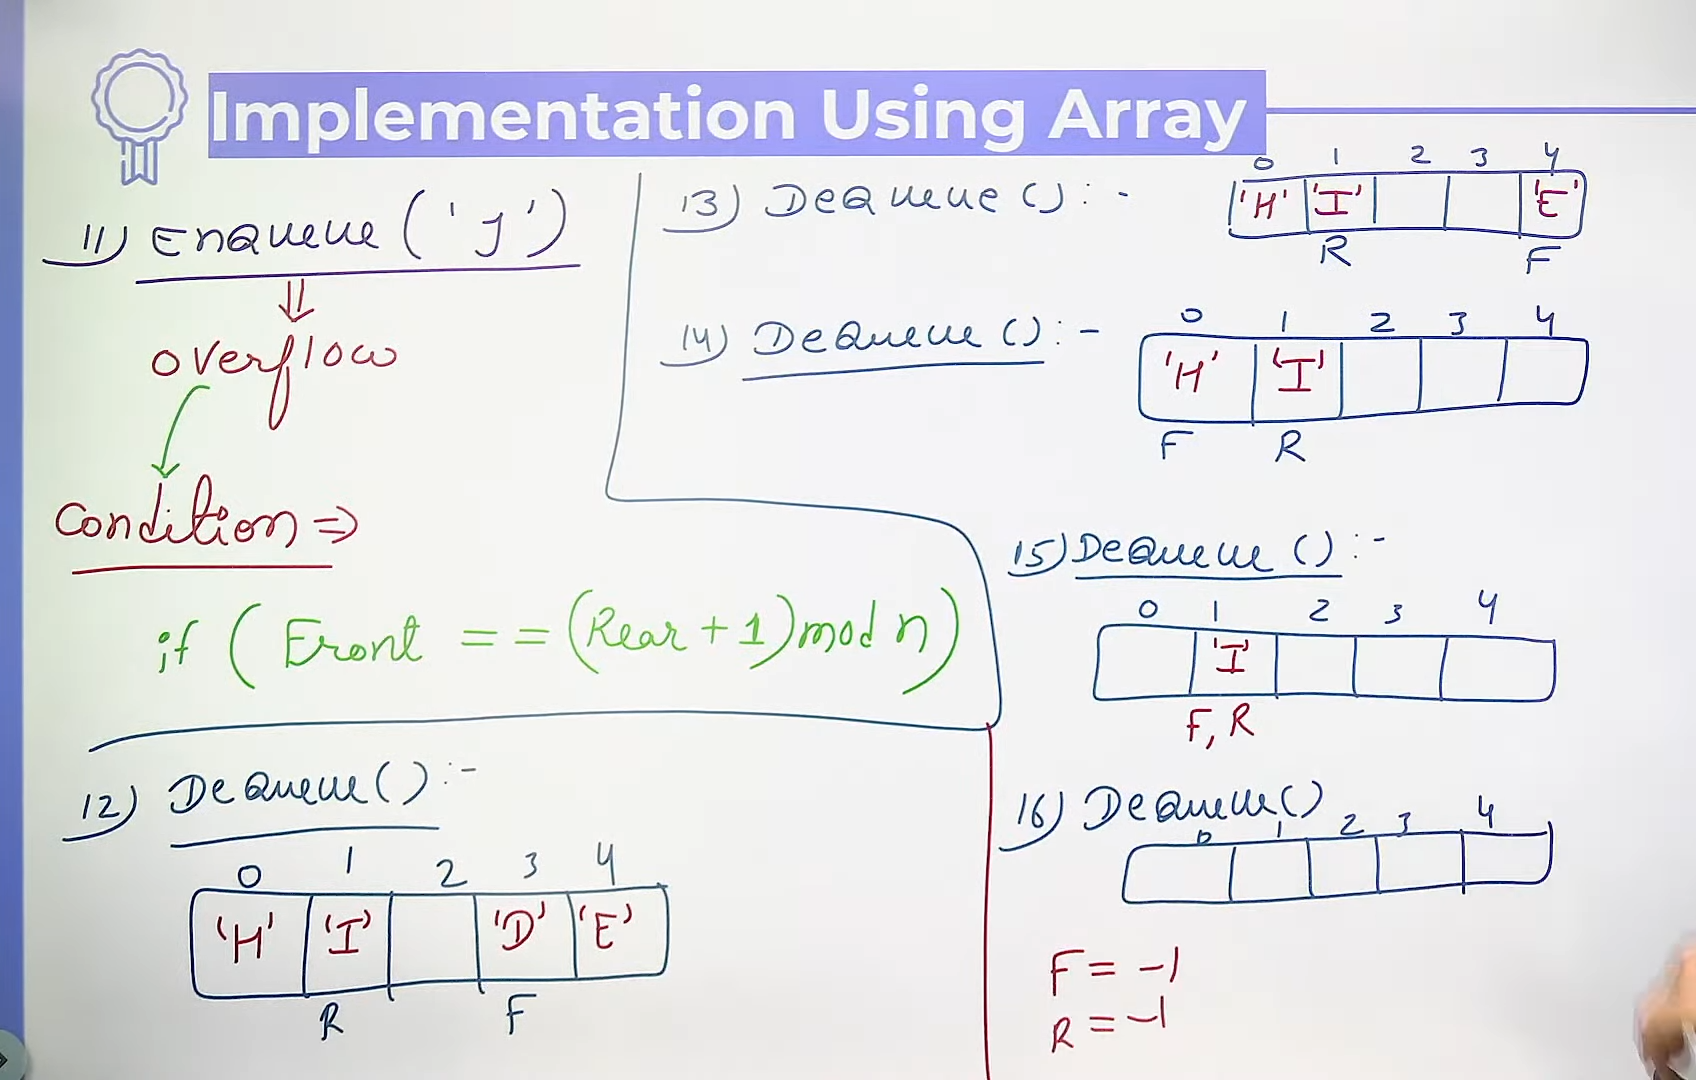 Implementation Using Array
11) Enqueue ('J')
⇓
overflow
Condition ⇒
if ( Front == (Rear + 1) mod n )
12) DeQueue() :-
0 1 2 3 4
'H' 'I' 'D' 'E'
R F
13) DeQueue () : -
0 1 2 3 4
'H' 'I' 'E'
R F
14) DeQueue () : -
0 1 2 3 4
'H' 'I'
F R
15) DeQueue () : -
0 1 2 3 4
'I'
F, R
16) DeQueue()
0 1 2 3 4
F = -1
R = -1